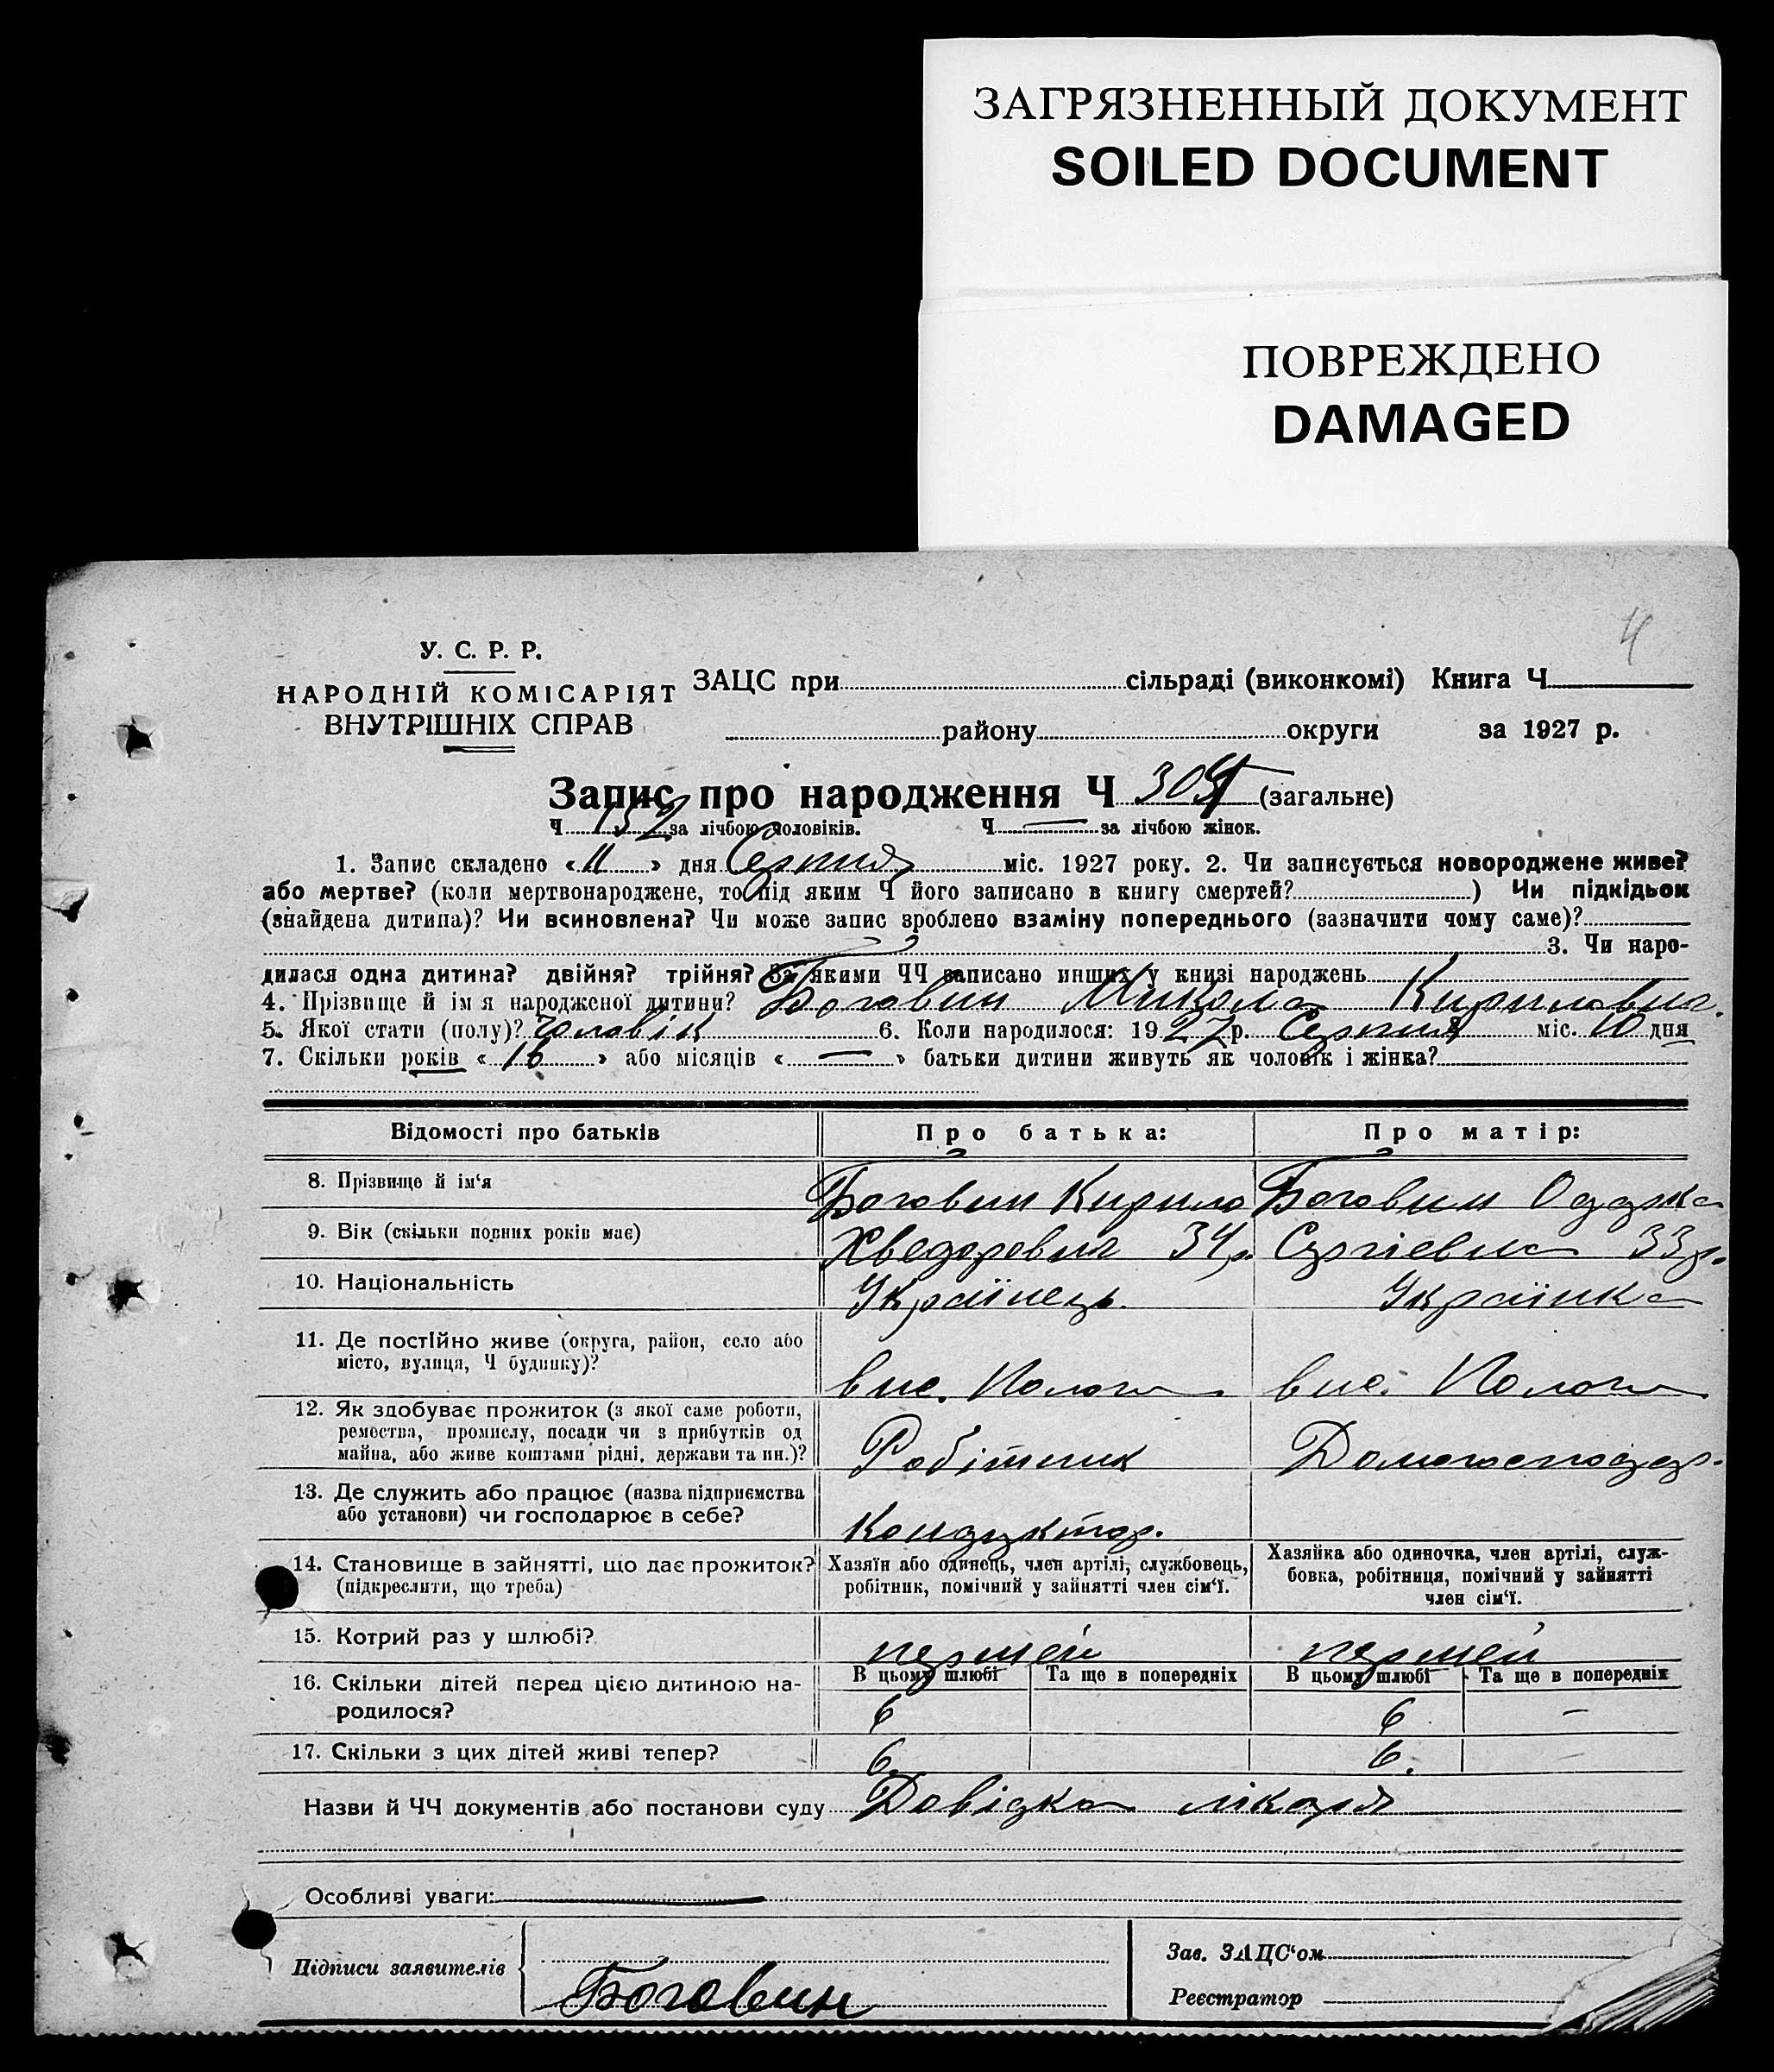 ЗАГРЯЗНЕННЫЙ ДОКУМЕНТ
SOILED DOCUMENT
ПОВРЕЖДЕНО
DAMAGED
4
У. С. Р. Р.
НАРОДНІЙ КОМІСАРІЯТ
ВНУТРІШНІХ СПРАВ
ЗАЦС при сільраді (виконкомі) Книга Ч
району округи за 1927 р.
Запис про народження Ч (загальне)
Ч 152 за лічбою чоловіків. Ч — за лічбою жінок.
1. Запис складено «11» дня Серпня міс. 1927 року. 2. Чи записується новороджене живе?
або мертве? (коли мертвонароджене, то під яким Ч його записано в книгу смертей? ) Чи підкідьок
(знайдена дитина)? Чи всиновлена? Чи може запис зроблено взаміну попереднього (зазначити чому саме)?
3. Чи наро-
дилася одна дитина? двійня? трійня? За якими ЧЧ записано инших у книзі народжень
4. Прізвище й ім я народженої дитини? Боговин Микола Кирилович.
5. Якої стати (полу)? Чоловік 6. Коли народилося: 1927 р. Серпня міс. 10 дня
7. Скільки років «16» або місяців «—» батьки дитини живуть як чоловік і жінка?
Відомості про батьків Про батька: Про матір:
8. Прізвище й ім'я Боговин Кирило Боговин
9. Вік (скільки повних років має) Хведорович 34 р. Сергіевна 33 р.
10. Національність Українець. Українка
11. Де постійно живе (округа, район, село або
місто, вулиця, Ч будинку)? вис. Пологи вис. Пологи
12. Як здобуває прожиток (з якої саме роботи,
ремества, промислу, посади чи з прибутків од
майна, або живе коштами рідні, держави та ин.)? Робітник Домогосподар.
13. Де служить або працює (назва підприємства
або установи) чи господарює в себе? Кондуктор.
14. Становище в зайнятті, що дає прожиток?
(підкреслити, що треба)
Хазяїн або одинець, член артілі, службовець,
робітник, помічний у зайнятті член сім'ї.
Хазяйка або одиночка, член артілі, служ-
бовка, робітниця, помічний у зайнятті
член сім'ї.
15. Котрий раз у шлюбі? перший перший
В цьому шлюбі Та ще в попередніх В цьому шлюбі Та ще в попередніх
16. Скільки дітей перед цією дитиною на-
родилося? 6 6 —
17. Скільки з цих дітей живі тепер? 6. 6. —
Назви й ЧЧ документів або постанови суду Довідка лікаря
Особливі уваги:
Підписи заявителів Боговин
Зав. ЗАЦС'ом
Реєстратор